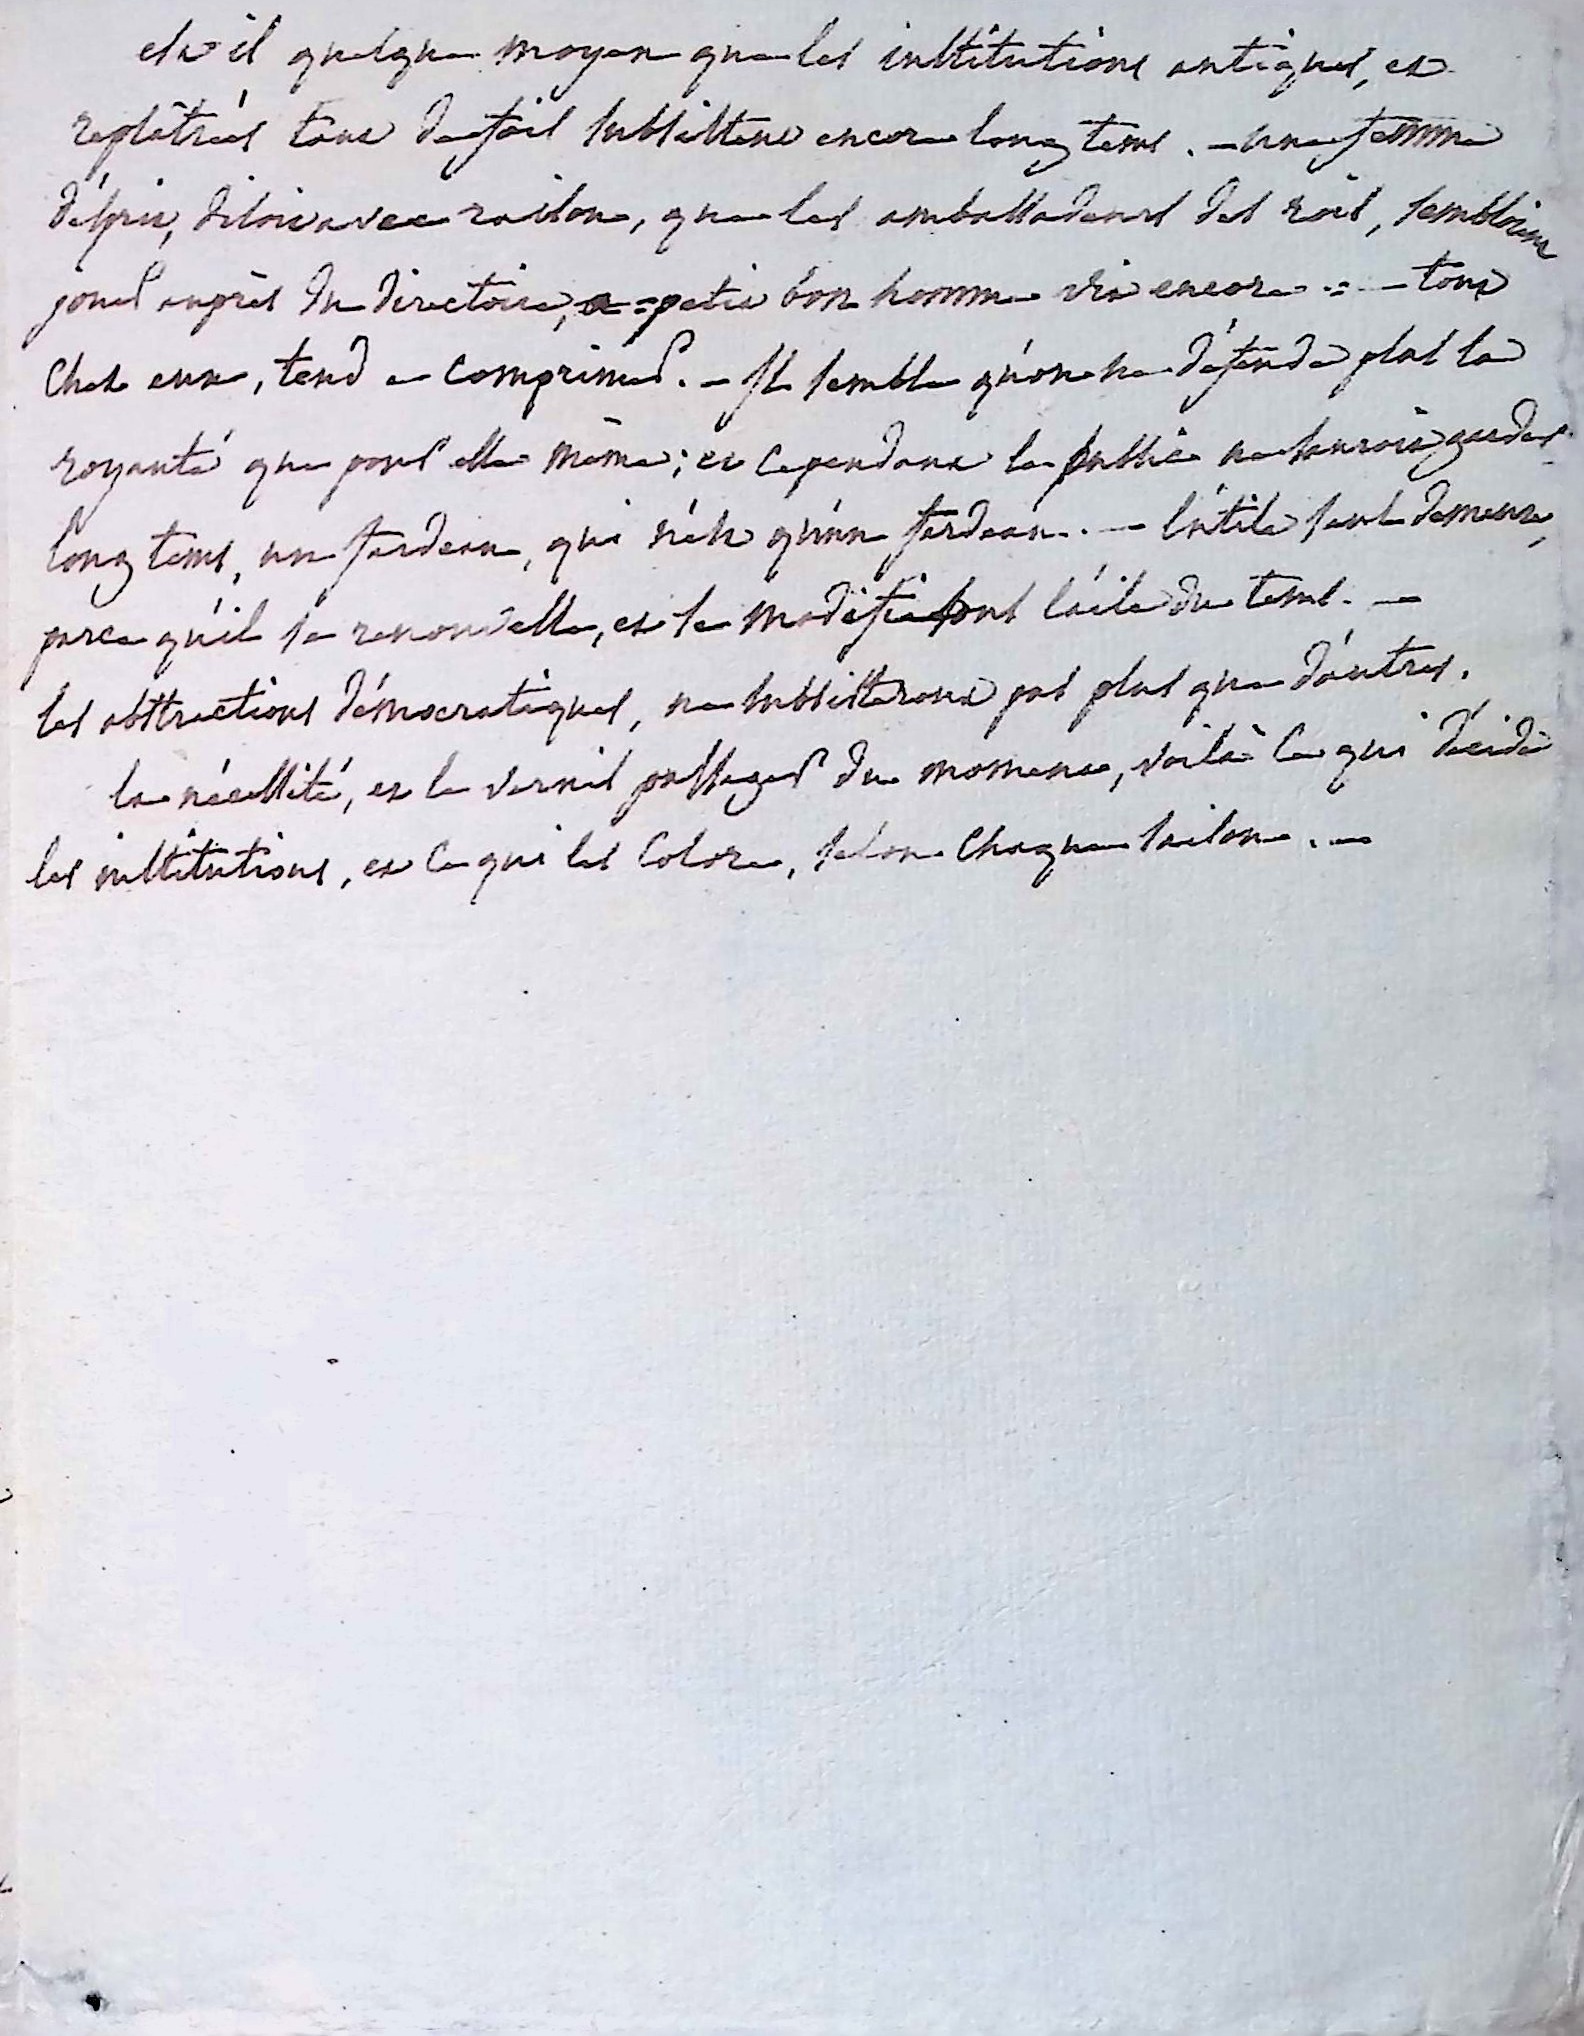 est il quelque moyen que les institutions antiques, et
replâtrées tant de fois subsistent encore longtems. - une femme
d'ésprit, disoit avec raison, que les ambassadeurs des rois, sembloient
jouer auprès du directoire, a = petit bon homme vit encore = - tout
chez eux, tend a comprimer. - Il semble qu'on ne défende plus la
royauté que pour elle même ; et cependant le public ne sauroit garder
longtems, un fardeau, qui n'est qu'un fardeau. - l'utile seul demeure,
parce qu'il se renouvelle, et se modifie sous l'aile du tems. -
les abstractions démocratiques, ne subsisteront pas plus que d'autres.
la nécessité, et le vernis passager du moment, voilà ce qui décide
les institutions, et ce qui les colore, selon chaque saison. -